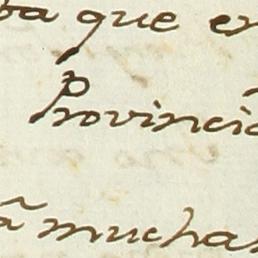 ba que en
Provincia
ã muchas